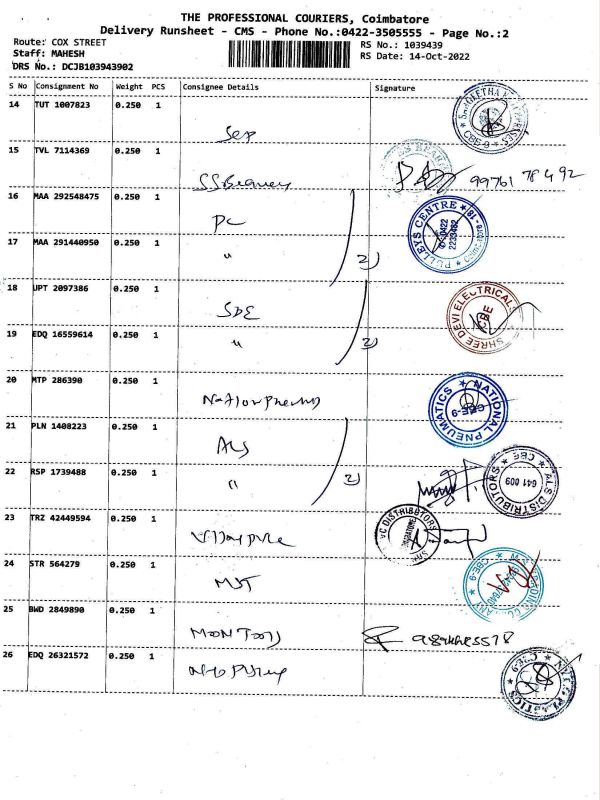 THE PROFESSIONAL COURIERS, Coimbatore
Delivery Runsheet - CMS - Phone No.:0422-3505555 - Page No.:2
Route: COX STREET
RS No.: 1039439
Staff: MAHESH
RS Date: 14-Oct-2022
DRS No.: DCJB103943902
S No Consignment No Weight PCS Consignee Details Signature
14 TUT 1007823 0.250 1
15 TVL 7114369 0.250 1
99761 78492
16 MAA 292548475 0.250 1
PC
PULLEYS CENTRE
0422
2233462
17 MAA 291440950 0.250 1
"
2)
18 UPT 2097386 0.250 1
SDE
SHREE DEVI ELECTRICALS
CBE
19 EDQ 16559614 0.250 1
"
2)
20 MTP 286390 0.250 1
NATIONAL PNEUMATICS
CBE-9
21 PLN 1408223 0.250 1
ALS
22 RSP 1739488 0.250 1
"
2)
A.L.S DISTRIBUTORS
CBE
641 009
23 TRZ 42449594 0.250 1
VC DISTRIBUTORS
24 STR 564279 0.250 1
MST
CBE-9
25 BWD 2849890 0.250 1
26 EDQ 26321572 0.250 1